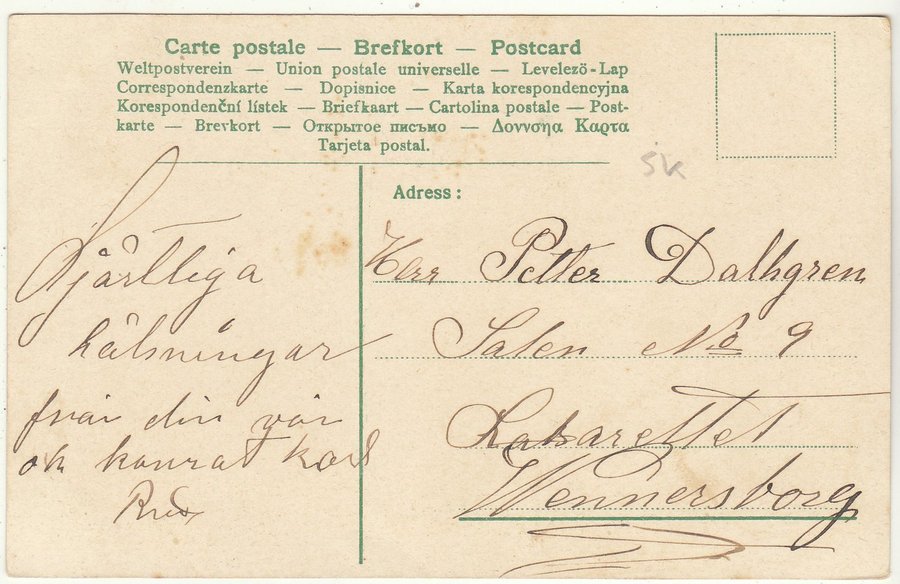 Carte postale — Brefkort — Postcard
Weltpostverein — Union postale universelle — Levelező-Lap
Correspondenzkarte — Dopisnice — Karta korespondencyjna
Korespondenční lístek — Briefkaart — Cartolina postale — Post-
karte — Brevkort — Открытое письмо — Δοννσηα Καρτα
Tarjeta postal.
SK
Adress:
Herr Petter Dalhgren
Salen No 9
Lasarettet
Wennersborg
Hjärtliga
hälsningar
från din vän
ok kamrat Karl